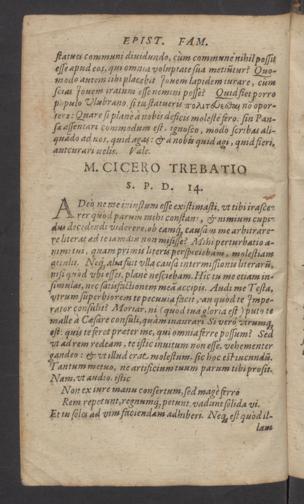 EPIST. FAM.
statues communi diuidundo, cùm commune nihil possit
esse apud eos, qui omnia voluptate sua metiūtur? Quo-
modo autem tibi placebit Iouem lapidem iurare, cùm
scias Iouem iratum esse nemini posse? Quid fiet porro
populo Vlubrano, si tu statueris πολιτεύεσθαι nō opor-
tere? Quare si planè à nobis deficis molestè fero. sin Pan-
sæ assentari commodum est, ignosco, modò scribas ali-
quādo ad nos, quid agas: & à nobis quid agi, quid fieri,
aut curari velis. Vale.
M. CICERO TREBATIO
S. P. D. 14.
ADeò ne me iniustum esse existimasti, vt tibi irasce-
rer quòd parum mihi constans, & nimium cupi-
dus decedendi viderere, ob eamq́, causā me arbitrare-
re literas ad te iamdiu non misisse? Mihi perturbatio a-
nimi tui, quam primis literis perspiciebam, molestiam
attulit. Neq, alia fuit vlla causa intermissionis literarū,
nisi quòd vbi esses, planè nesciebam. Hic tu me etiam in-
simulas, nec satisfactionem meā accipis. Audi mi Testa,
vtrum superbiorem te pecunia facit, an quòd te Impe-
rator consulit? Moriar, ni (quæ tua gloria est) puto te
malle à Cæsare consuli, quàm inaurari. Si verò vtrumq,
est: quis te feret præter me, qui omnia ferre possum? Sed
vt ad rem redeam, te istic inuitum non esse, vehementer
gaudeo: & vt illud erat molestum, sic hoc est iucundū.
Tantum metuo, ne artificium tuum parum tibi prosit.
Nam, vt audio, istic
Non ex iure manu consertum, sed magè ferro
Rem repetunt, regnumq́, petunt, vadunt solida vi.
Et tu soles ad vim faciendam adhiberi. Neq, est quòd il-
lam